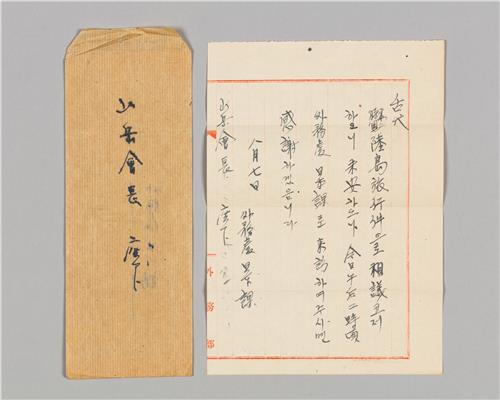 山岳會長 座下
舌代
鬱陵島旅行件으로 相議코저
하오니 未安하오나 今日午后二時頃
外務處 日本課로 来訪하여주시면
感謝하겠습니다
八月七日
外務處 日本課
山岳會長 座下
外務部